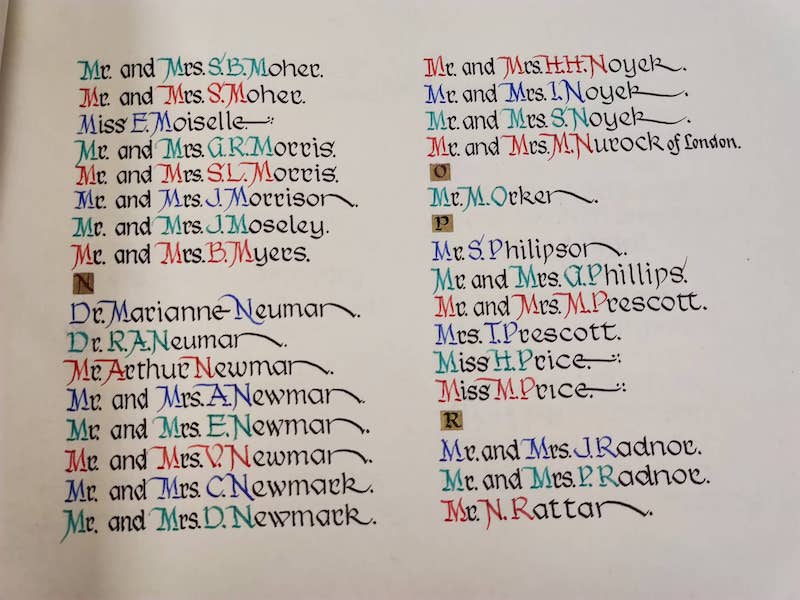 Mr. and Mrs. S.B. Moher.
Mr. and Mrs. S. Moher.
Miss E. Moiselle.
Mr. and Mrs. G.R. Morris.
Mr. and Mrs. S.L. Morris.
Mr. and Mrs. J. Morrison.
Mr. and Mrs. J. Moseley.
Mr. and Mrs. B. Myers.
N
Dr. Marianne Neuman.
Dr. R.A. Neuman.
Mr. Arthur Newman.
Mr. and Mrs. A. Newman.
Mr. and Mrs. E. Newman.
Mr. and Mrs. V. Newman.
Mr. and Mrs. C. Newmark.
Mr. and Mrs. D. Newmark.
Mr. and Mrs. H.H. Noyek.
Mr. and Mrs. I. Noyek.
Mr. and Mrs. S. Noyek.
Mr. and Mrs. M. Nurock of London.
O
Mr. M. Orken.
P
Mr. S. Philipson.
Mr. and Mrs. G. Phillips.
Mr. and Mrs. M. Prescott.
Mrs. T. Prescott.
Miss H. Price.
Miss M. Price.
R
Mr. and Mrs. J. Radnor.
Mr. and Mrs. P. Radnor.
Mr. N. Rattan.